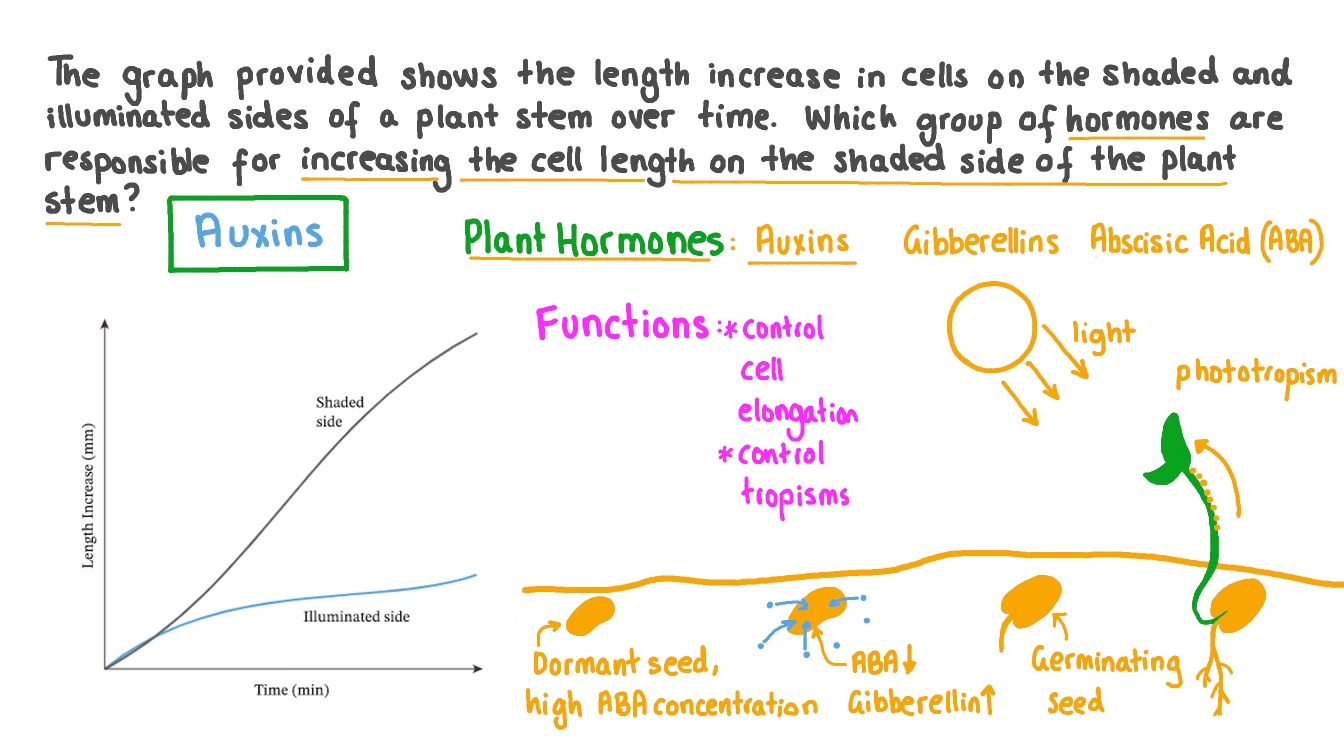 The graph provided shows the length increase in cells on the shaded and
illuminated sides of a plant stem over time. Which group of hormones are
responsible for increasing the cell length on the shaded side of the plant
stem?
Auxins
Plant Hormones: Auxins Gibberellins Abscisic Acid (ABA)
Functions: *control
cell
elongation
*control
tropisms
light
phototropism
Length Increase (mm)
Shaded
side
Illuminated side
Time (min)
Dormant seed,
high ABA concentration
ABA↓
Gibberellin↑
Germinating
seed